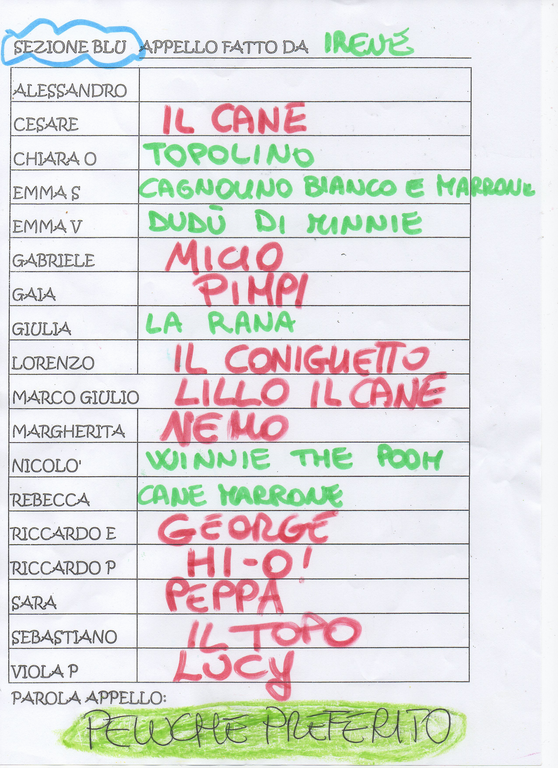 SEZIONE BLU APPELLO FATTO DA IRENE
ALESSANDRO
CESARE IL CANE
CHIARA O TOPOLINO
EMMA S CAGNOLINO BIANCO E MARRONE
EMMA V DUDÙ DI MINNIE
GABRIELE MICIO
GAIA PIMPI
GIULIA LA RANA
LORENZO IL CONIGLIETTO
MARCO GIULIO LILLO IL CANE
MARGHERITA NEMO
NICOLO' WINNIE THE POOH
REBECCA CANE MARRONE
RICCARDO E GEORGE
RICCARDO P HI-O'
SARA PEPPA
SEBASTIANO IL TOPO
VIOLA P LUCY
PAROLA APPELLO:
PELUCHE PREFERITO